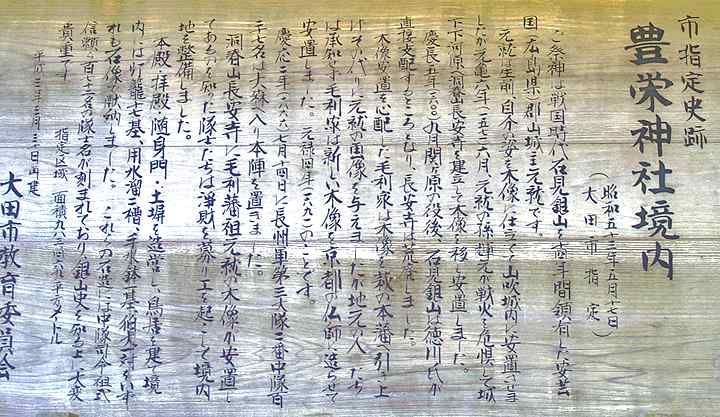 市指定史跡
豊栄神社境内
（昭和五十三年五月十七日
大田市指定）
ご祭神は戦国時代石見銀山を 年間領有した安芸
国（広島県）郡山城主元就です。
元就は生前、自分の姿を木像に 山吹城内に安置
したが元亀二年（一五七一）六月、元就の孫輝元が戦火を危惧して城
下 河原に洞春山長安寺を建立して木像を移し安置しました。
慶長五年（一六〇〇）九月関ヶ原の役後、石見銀山は徳川氏が
直接支配するところとなり、長安寺は荒廃しました。
木像安置を心配した毛利家は木像を萩の本藩へ引き上
げそのかわりに元就の画像を与えましたが地元の人たち
は承知せず毛利家は新しい木像を京都の仏師に造らせて
安置しました。元禄四年（一六九一）のことです。
慶応二年（一八六六）七月 四日に長州軍第三大隊二番中隊百
二十 名は大森へ入り本陣を置きました。
洞春山長安寺に毛利藩祖元就の木像が安置し
てあるのを知った隊士たちは浄財を募り工を起こして境内
地を整備しました。
本殿、拝殿、随身門、土塀を造営し、鳥居を建て境
内には灯籠七基、用水溜二槽、手水鉢一基、狛犬一対をいず
れも石像で献納しました。これらの石造に
信頼ほか百十三名の隊士名が刻まれており銀山史を知る上、大変
貴重です。
指定区域 面積九八三・ 平方メートル
平成 年三月三十日再建
大田市教育委員会